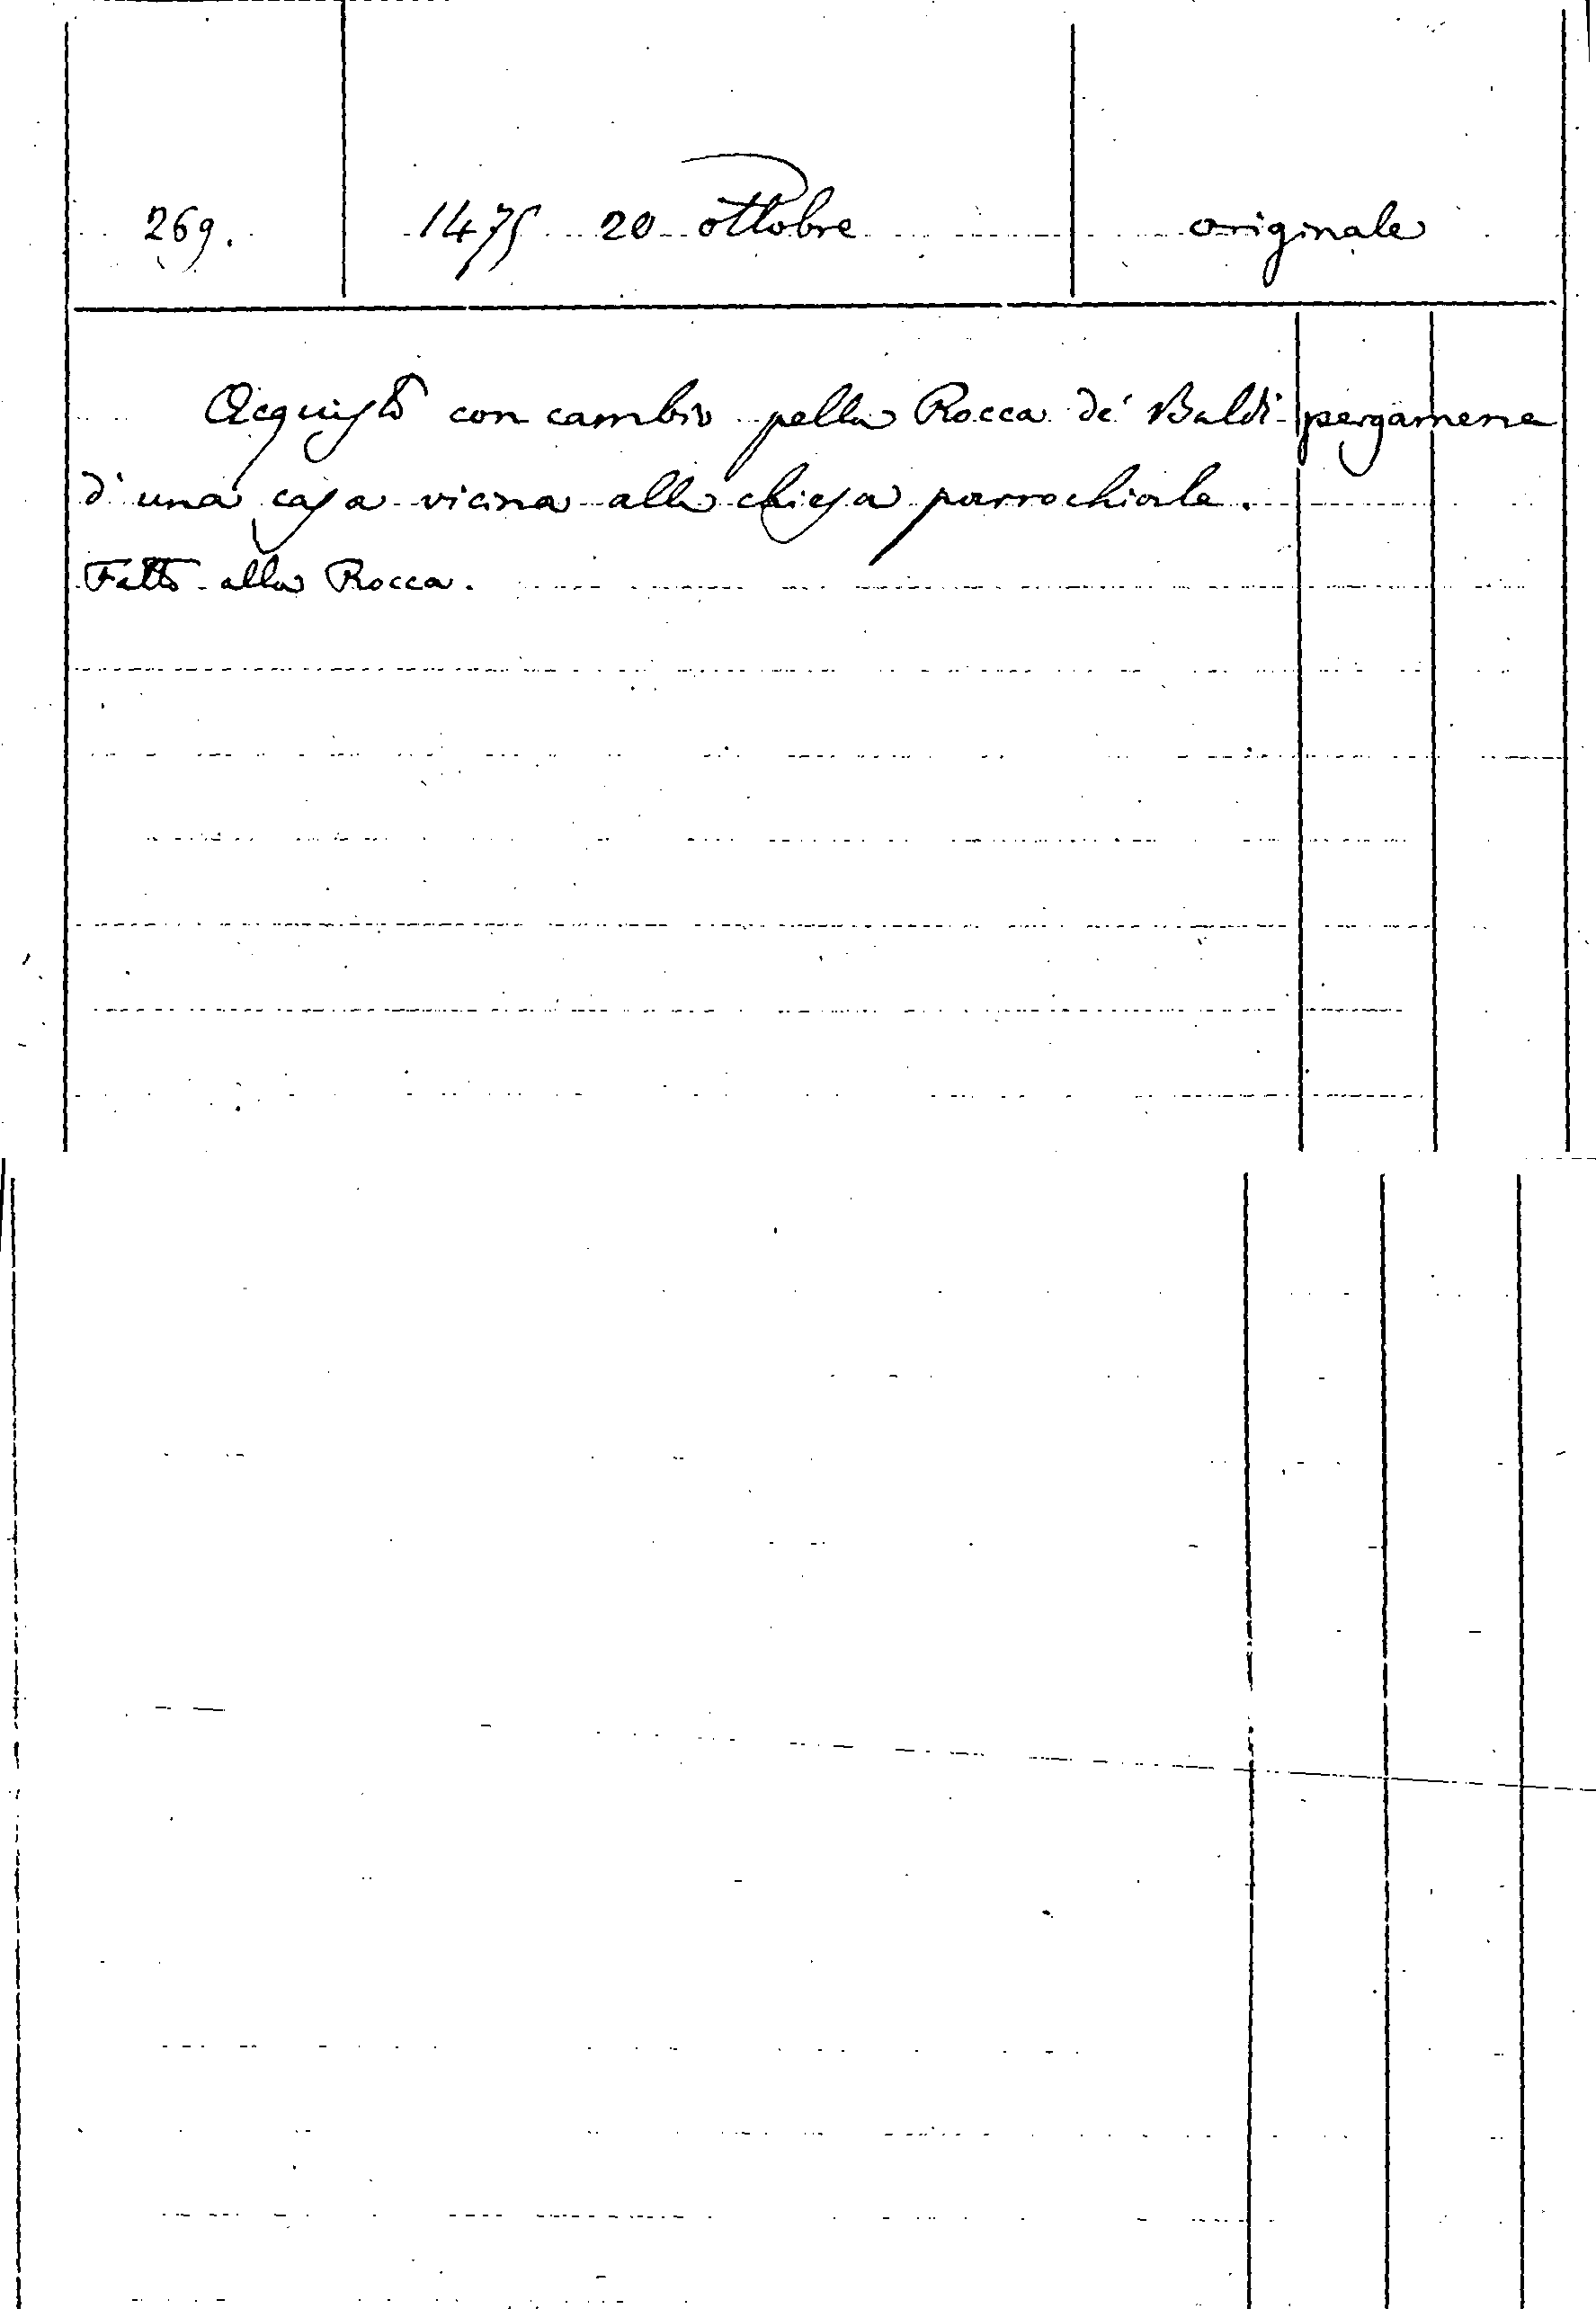 269. 1475 20 ottobre originale
Acquisto con cambio pella Rocca de' Baldi pergamena
d'una casa vicina alla chiesa parrochiale.
Fatto alla Rocca.